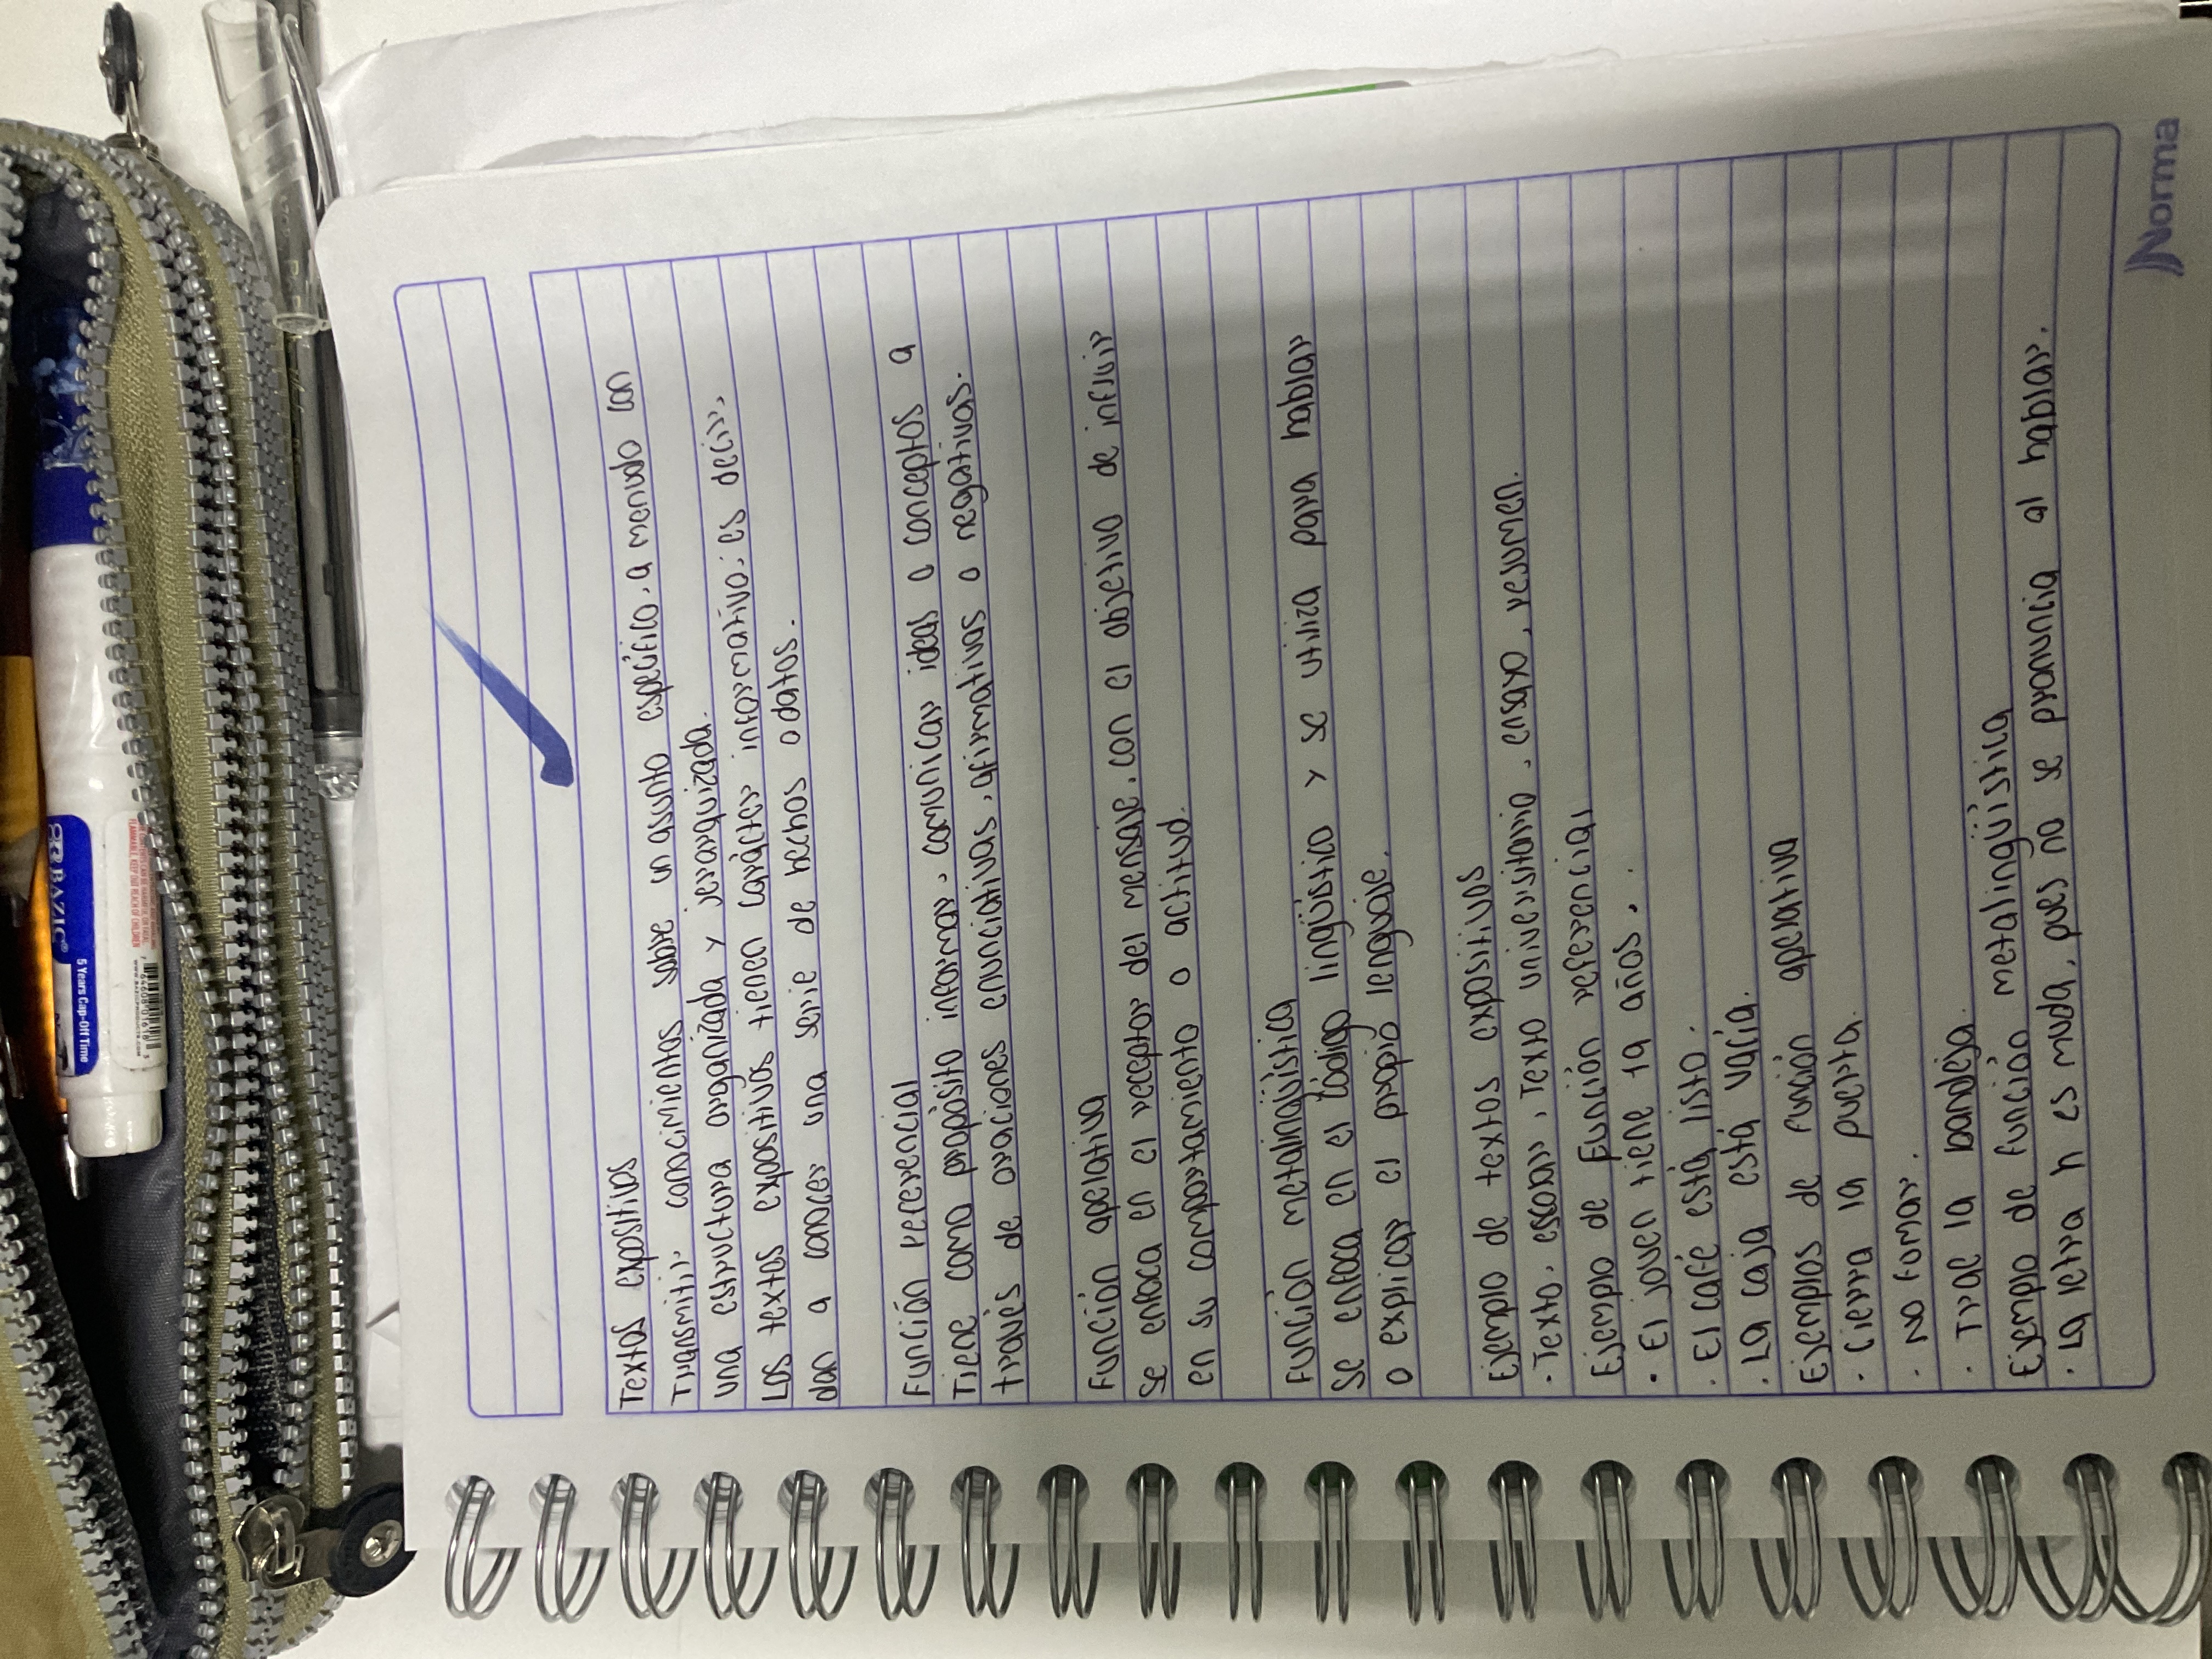 Textos expositivos
Transmitir conocimientos sobre un asunto específico, a menudo con
una estructura organizada y jerarquizada.
Los textos expositivos tienen carácter informativo; es decir,
dan a conocer una serie de hechos o datos.
Función referencial
Tiene como propósito informar, comunicar ideas o conceptos a
través de oraciones enunciativas, afirmativas o negativas.
Función apelativa
Se enfoca en el receptor del mensaje, con el objetivo de influir
en su comportamiento o actitud.
Función metalingüística
Se enfoca en el código lingüístico y se utiliza para hablar
o explicar el propio lenguaje.
Ejemplo de textos expositivos
· Texto, escolar, Texto universitario, ensayo, resumen.
Ejemplo de función referencial
· El joven tiene 19 años.
· El café está listo.
· La caja está vacía.
Ejemplos de función apelativa
· Cierra la puerta.
· No fumar.
· Trae la bandeja.
Ejemplo de función metalingüística
· La letra h es muda, pues no se pronuncia al hablar.
Norma
BAZIC
5 Years Cap-Off Time